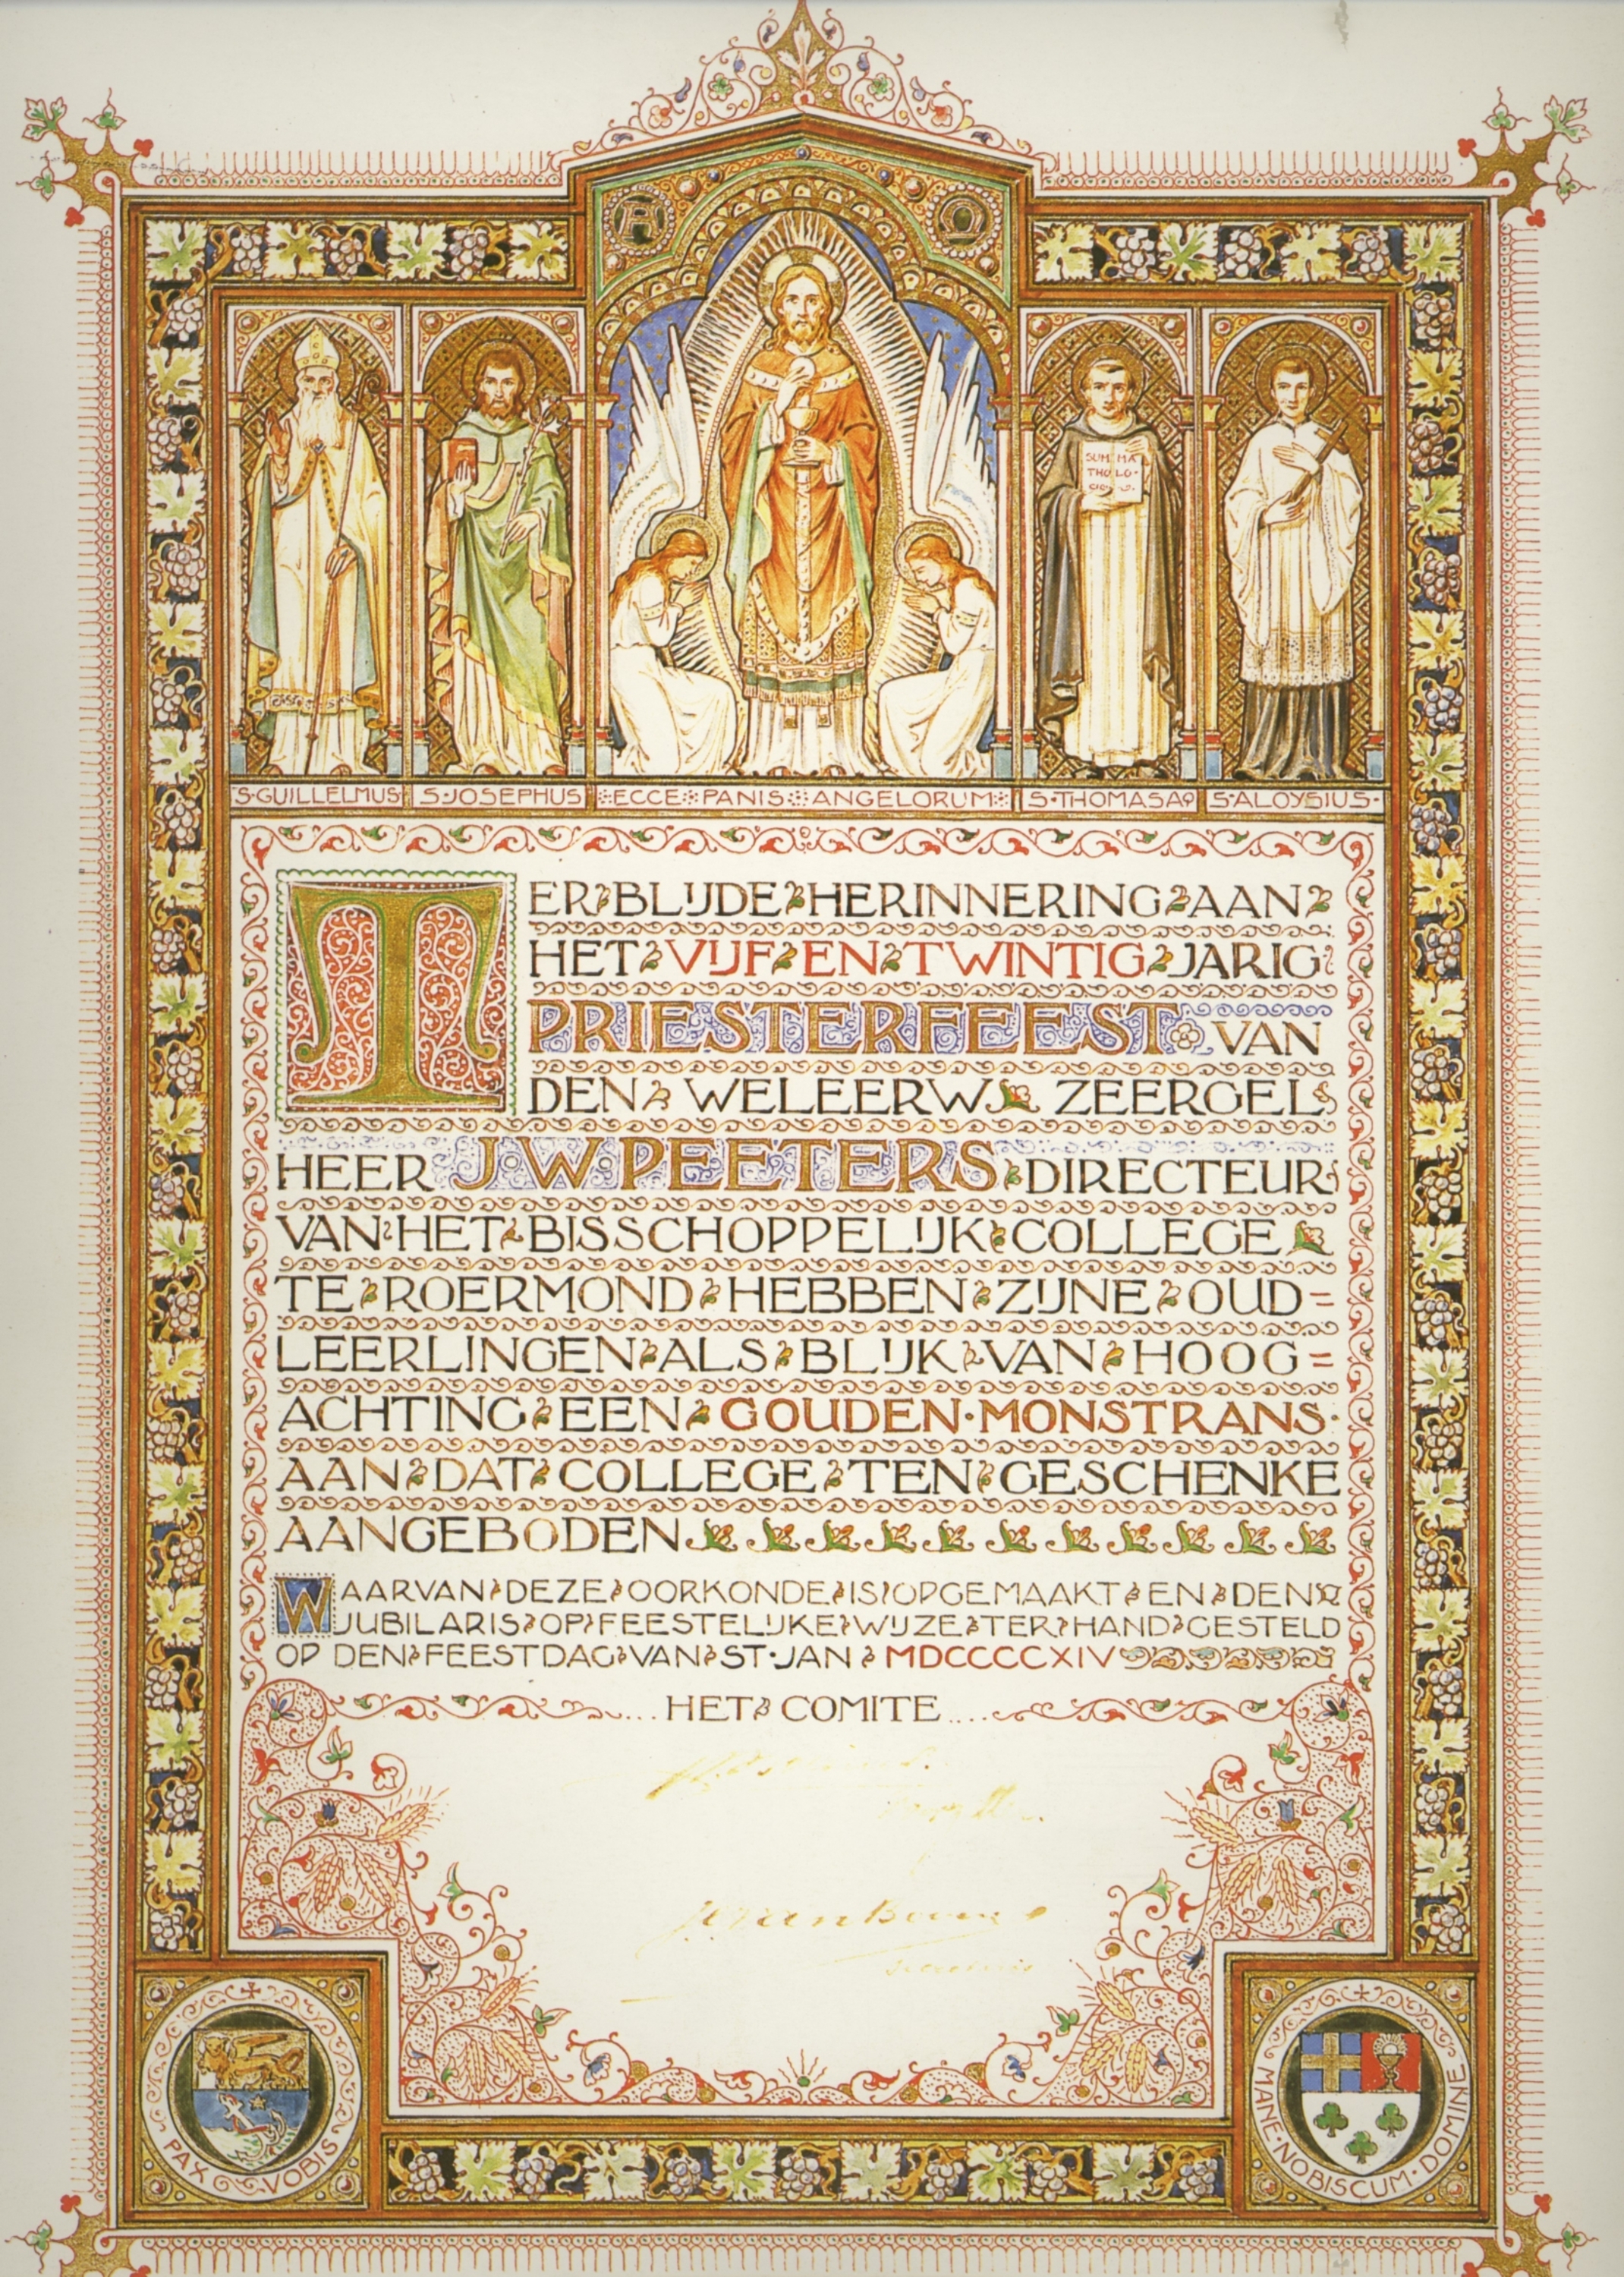 A Ω
SUM MA
THO LO
S·GUILLELMUS S·JOSEPHUS ECCE PANIS ANGELORUM S·THOMAS AQ S·ALOYSIUS
TER BLIJDE HERINNERING AAN
HET VIJF EN TWINTIG JARIG
PRIESTERFEEST VAN
DEN WELEERW ZEERGEL
HEER J W PEETERS DIRECTEUR
VAN HET BISSCHOPPELIJK COLLEGE
TE ROERMOND HEBBEN ZIJNE OUD=
LEERLINGEN ALS BLIJK VAN HOOG=
ACHTING EEN GOUDEN·MONSTRANS·
AAN DAT COLLEGE TEN GESCHENKE
AANGEBODEN
WAARVAN DEZE OORKONDE IS OPGEMAAKT EN DEN
JUBILARIS OP FEESTELIJKE WIJZE TER HAND GESTELD
OP DEN FEESTDAG VAN ST·JAN MDCCCCXIV
....HET COMITE....
PAX VOBIS
MANE·NOBISCUM·DOMINE